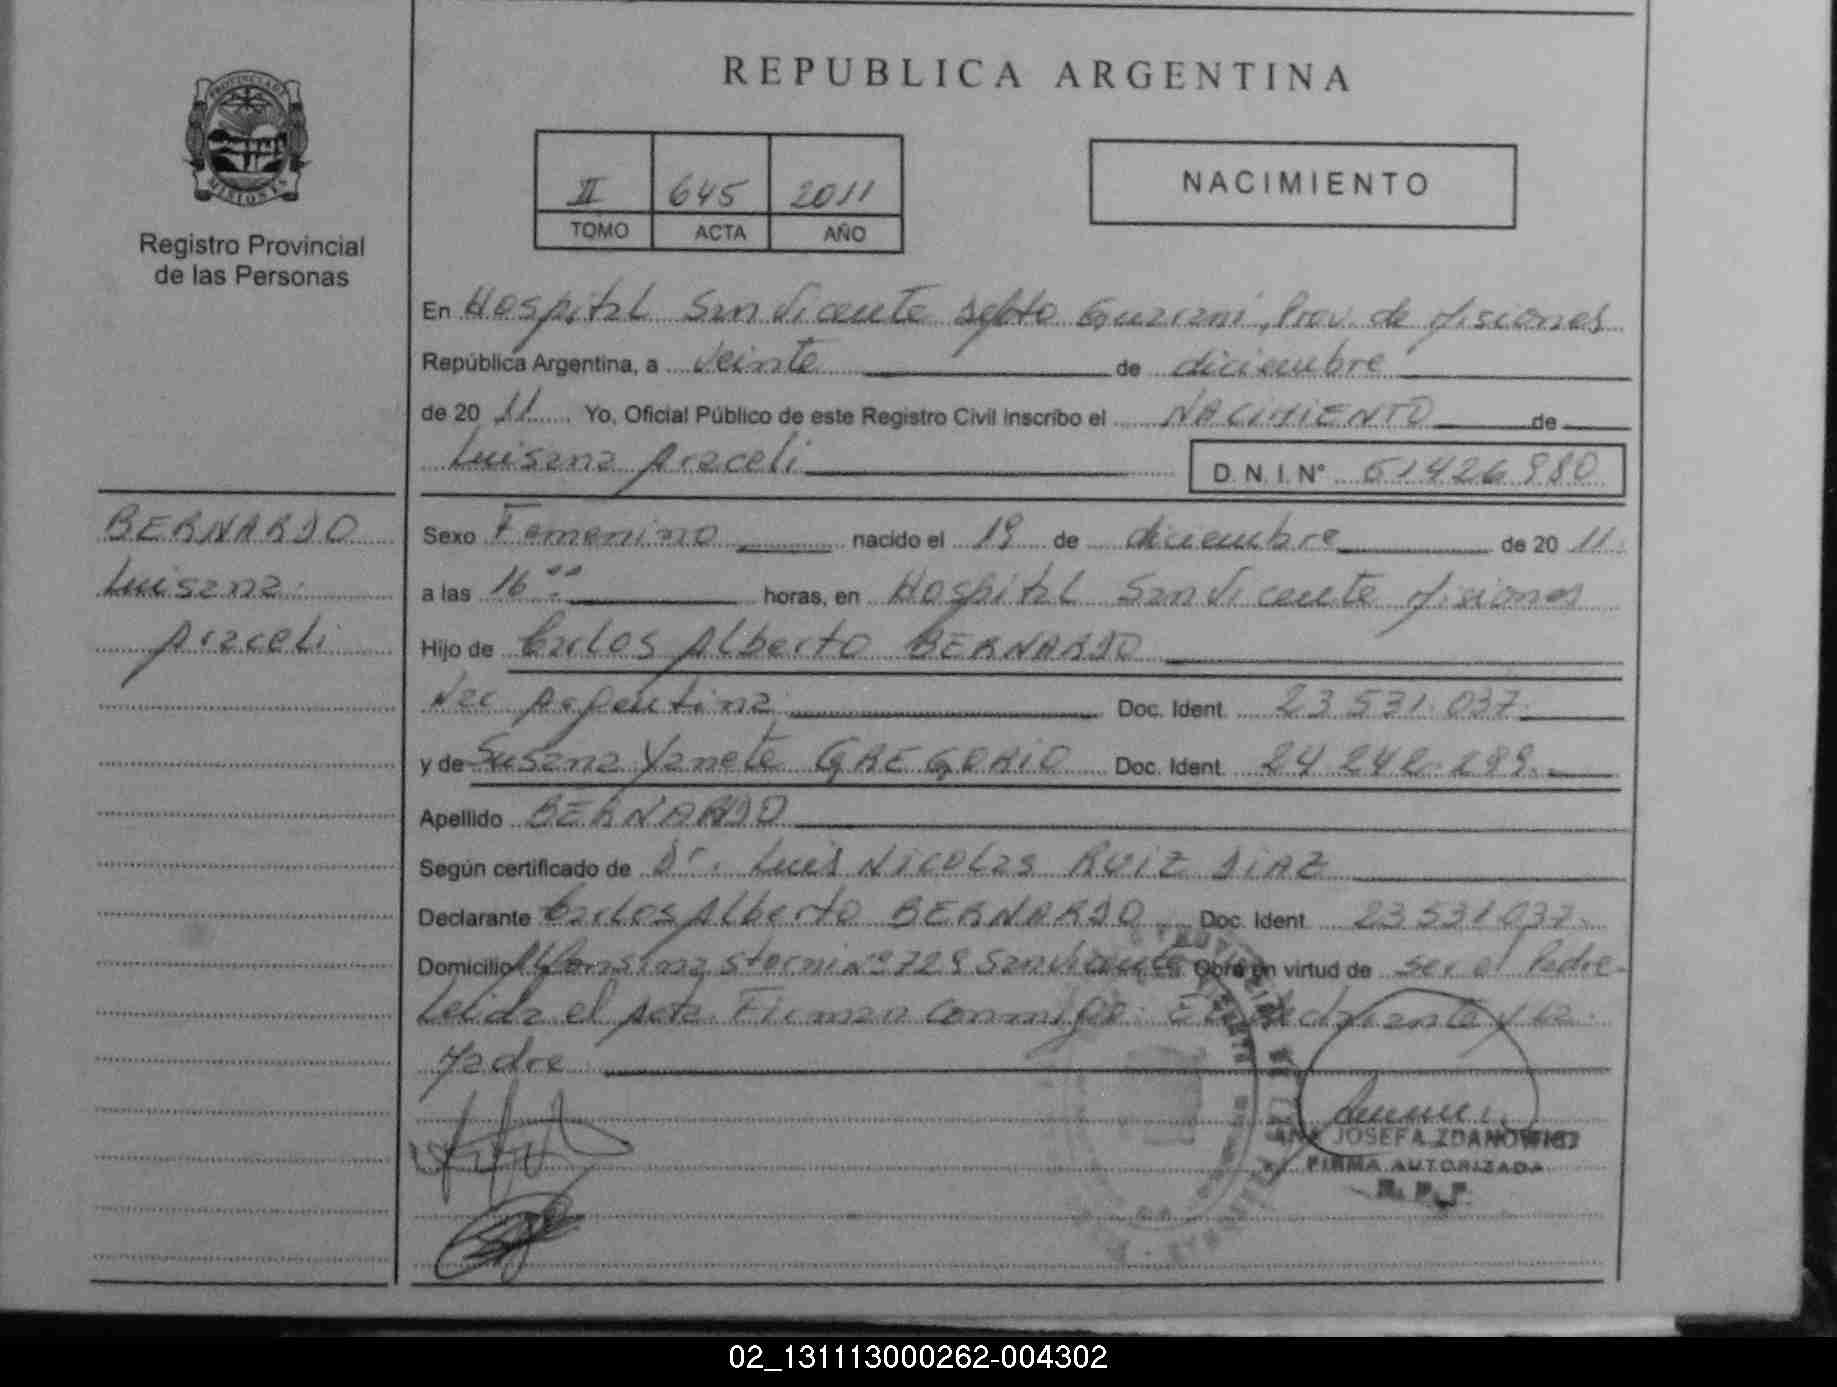 REPUBLICA ARGENTINA
PROVINCIA DE MISIONES
Registro Provincial
de las Personas
II 645 2011
TOMO ACTA AÑO
NACIMIENTO
En Hospital San Vicente Depto Guarani, Prov. de Misiones
República Argentina, a veinte de diciembre
de 20 11 Yo, Oficial Público de este Registro Civil inscribo el NACIMIENTO de
Luisana Araceli D.N.I.Nº 51426980
BERNARDO
Luisana
Araceli
Sexo Femenino nacido el 19 de diciembre de 20 11
a las 16 horas, en Hospital San Vicente Misiones
Hijo de Carlos Alberto BERNARDO
Nac Argentina Doc. Ident. 23.531.037
y de Susana Yanete GREGORIO Doc. Ident. 24.242.299
Apellido BERNARDO
Según certificado de Dr. Luis Nicolas RUIZ DIAZ
Declarante Carlos Alberto BERNARDO Doc. Ident. 23.531.037
Domicilio Alfonsina Storni Nº 729 San Vicente Obra en virtud de ser el Padre
Leida el Acta Firman conmigo: El Declarante y la
Madre
ANA JOSEFA ZDANOWICZ
FIRMA AUTORIZADA
R. P. P.
02_131113000262-004302